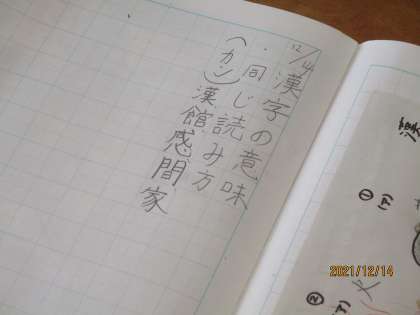 12/14
漢字の意味
・同じ読み方
(カン)漢館感間家
漢
①(ア)
②(ア)
2021/12/14